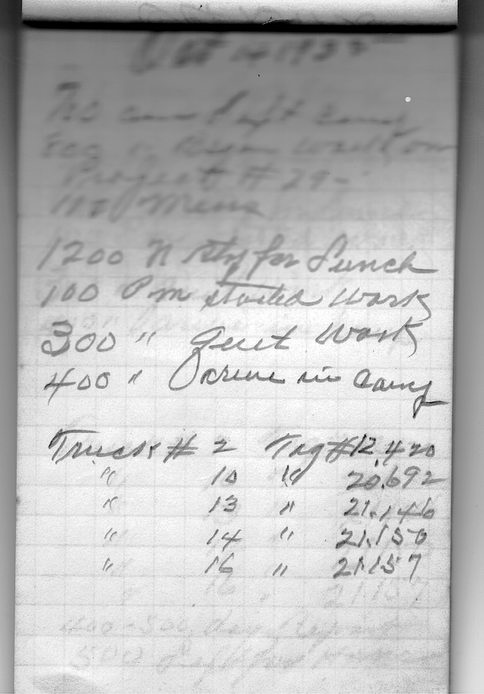 Oct 14 1935
700 am Left Camp
800 " Began Work on
Project # 29-
110 Mens
1200 N stop for Lunch
100 Pm started Work
300 " Quit Work
400 " in Camp
Truck # 2 Tag # 12,420
" 10 " 20,692
" 13 " 21,146
" 14 " 21,150
" 16 " 21,157